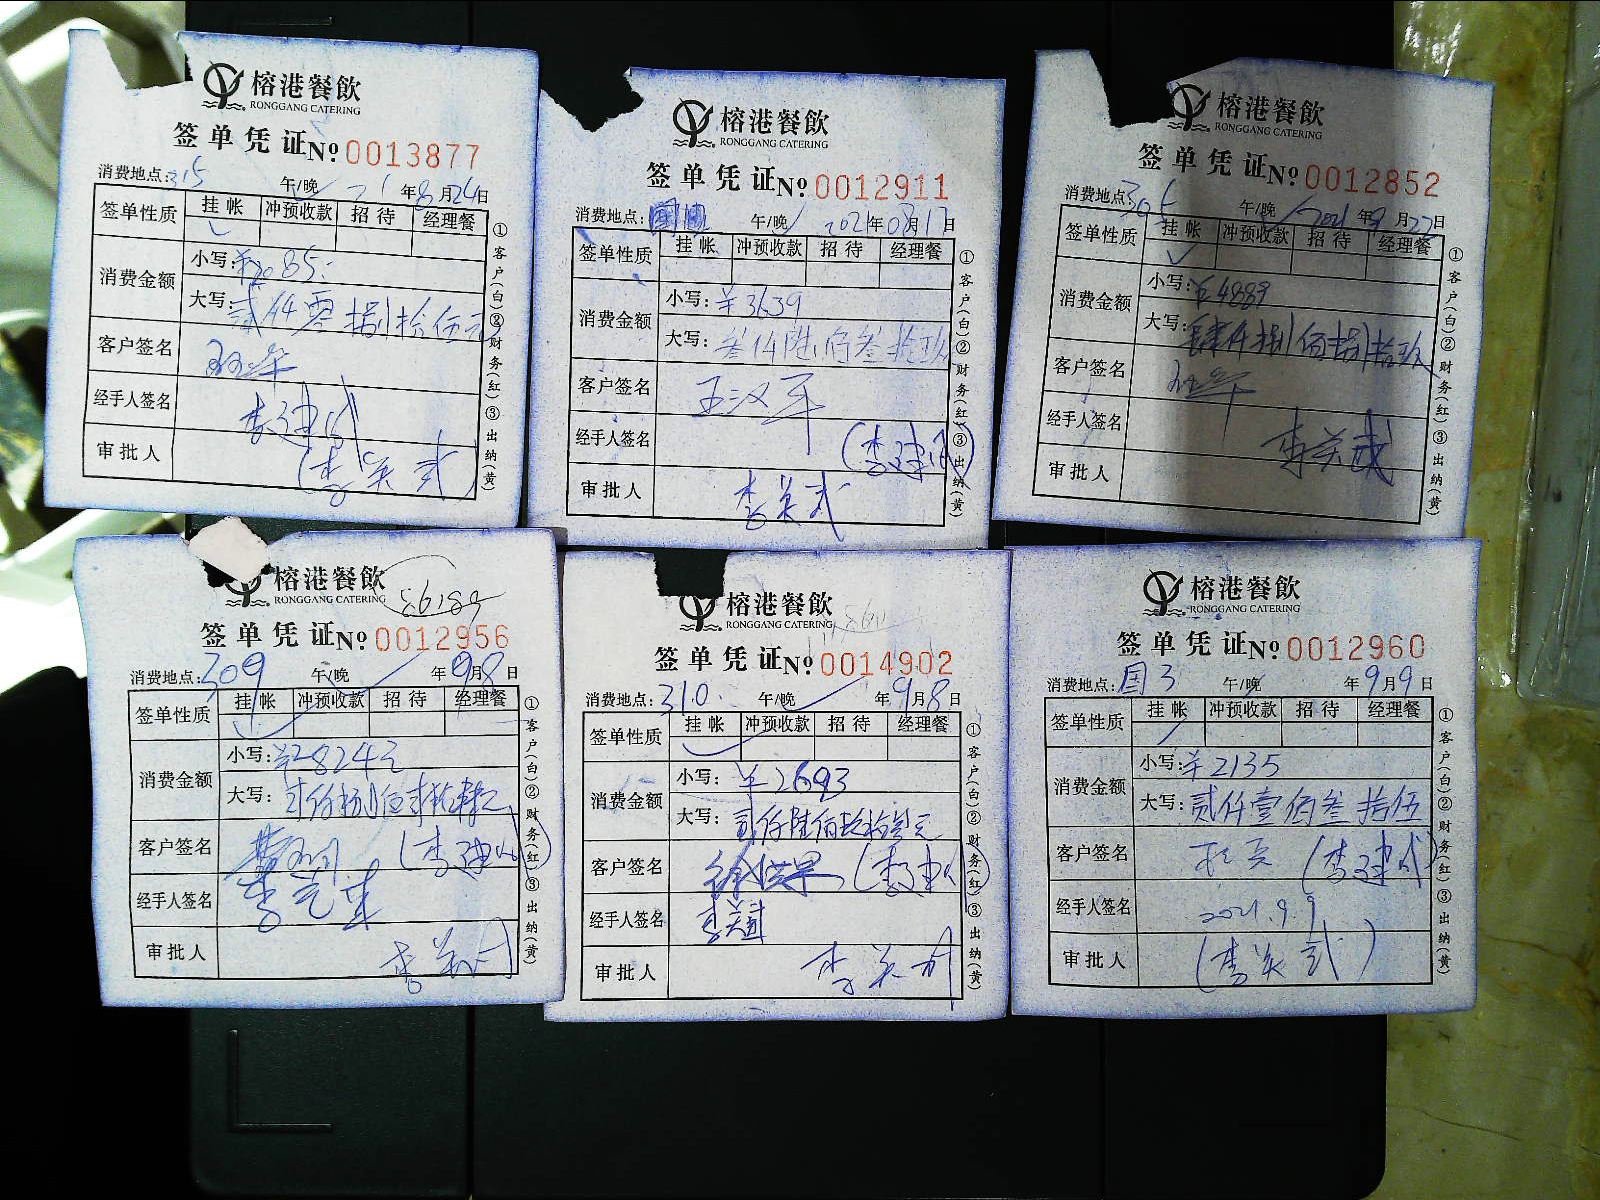 榕港餐飲
RONGGANG CATERING
签单凭证 No 0013877
消费地点: 315 午/晚 21年8月24日
签单性质 挂帐 冲预收款 招待 经理餐
消费金额 小写: ¥2085.-
大写: 贰仟零捌拾伍元
客户签名
经手人签名 李建成
审批人 (李关武)
①客户(白)②财务(红)③出纳(黄)
榕港餐飲
RONGGANG CATERING
签单凭证 No 0012911
消费地点: 午/晚 2021年08月17日
签单性质 挂帐 冲预收款 招待 经理餐
消费金额 小写: ¥3639
大写: 叁仟陆佰叁拾玖
客户签名 王汉军
经手人签名 (李建成)
审批人 李关武
①客户(白)②财务(红)③出纳(黄)
榕港餐飲
RONGGANG CATERING
签单凭证 No 0012852
消费地点: 305 午/晚 2021年9月27日
签单性质 挂帐 冲预收款 招待 经理餐
消费金额 小写: ¥4889
大写: 肆仟捌佰捌拾玖
客户签名
经手人签名 李关武
审批人
①客户(白)②财务(红)③出纳(黄)
榕港餐飲
RONGGANG CATERING
签单凭证 No 0012956
消费地点: 309 午/晚 年9月8日
签单性质 挂帐 冲预收款 招待 经理餐
消费金额 小写: ¥2824元
大写: 贰仟捌佰贰拾肆元
客户签名 (李建成)
经手人签名
审批人
①客户(白)②财务(红)③出纳(黄)
榕港餐飲
RONGGANG CATERING
签单凭证 No 0014902
消费地点: 310. 午/晚 年9月8日
签单性质 挂帐 冲预收款 招待 经理餐
消费金额 小写: ¥2693
大写: 贰仟陆佰玖拾叁元
客户签名 (李建成)
经手人签名
审批人
①客户(白)②财务(红)③出纳(黄)
榕港餐飲
RONGGANG CATERING
签单凭证 No 0012960
消费地点: 国3 午/晚 年9月9日
签单性质 挂帐 冲预收款 招待 经理餐
消费金额 小写: ¥2135
大写: 贰仟壹佰叁拾伍
客户签名 (李建成)
经手人签名 2021.9.9
审批人 (李关武)
①客户(白)②财务(红)③出纳(黄)